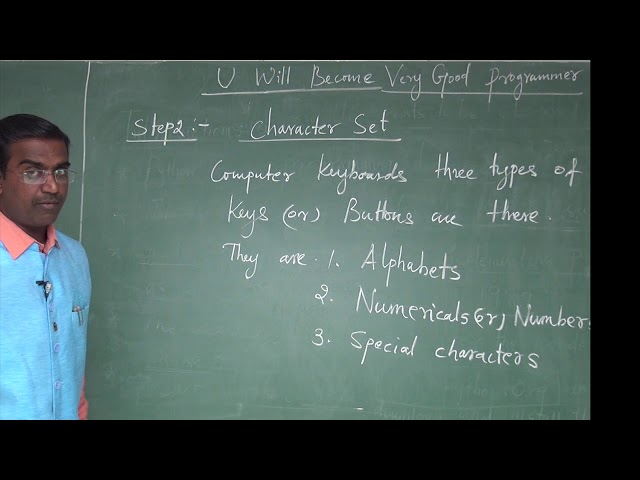 U Will Become Very Good Programmer
Step2:- Character Set
Computer Keyboards three types of
Keys (or) Buttons are there.
They are. 1. Alphabets
2. Numericals(or) Numbers
3. Special characters